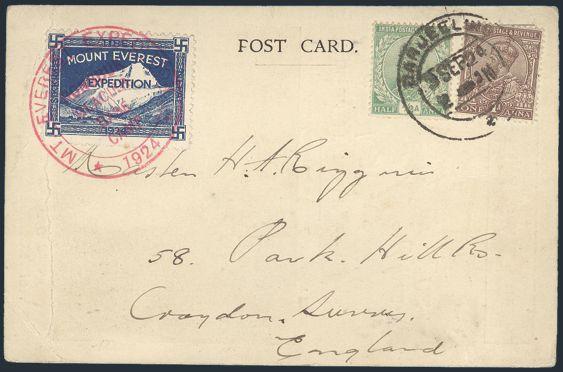 POST CARD.
MT EVEREST EXPED
1924
MOUNT EVEREST
EXPEDITION
1924
INDIA POSTAGE
HALF ANNA
POSTAGE & REVENUE
ONE ANNA
DARJEELING
SEP 24
H. A. Biggins
58. Park Hill Rd.
Croydon. Surrey.
England